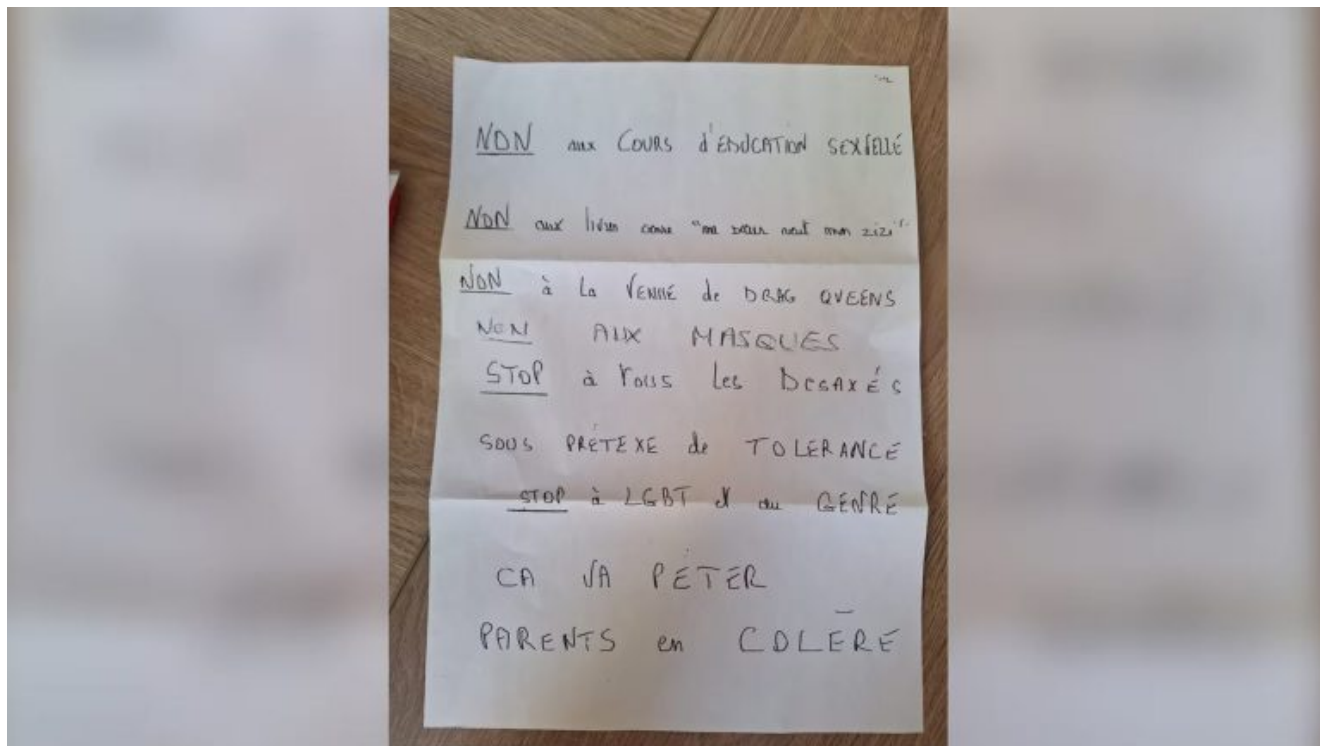 NON aux COURS d'EDUCATION SEXUELLE
NON aux livres comme "ma sœur veut mon zizi"
NON à La VENUE de DRAG QUEENS
NON AUX MASQUES
STOP à TOUS Les DESAXÉS
SOUS PRÉTEXE de TOLERANCE
STOP à LGBT et au GENRE
CA VA PÉTER
PARENTS en COLÈRE